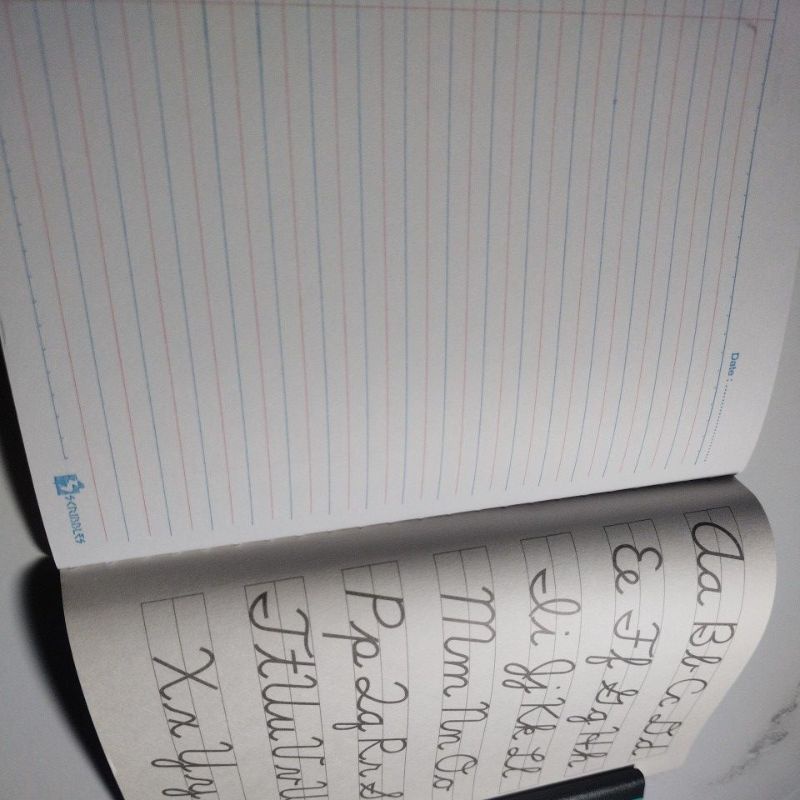 Date : ....................
SCRIBBLES
Aa Bb Cc Dd
Ee Ff Gg Hh
Ii Jj Kk Ll
Mm Nn Oo
Pp Qq Rr
Tt Uu Vv
Xx Yy